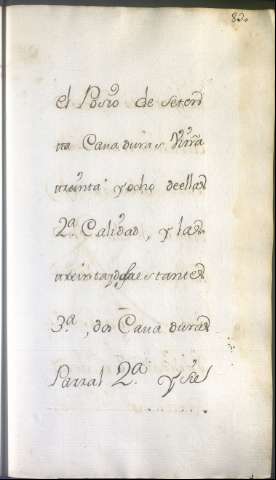 82.
el Posio de seten
ta Cavaduras Viña
treinta y ocho de ellas
2ª Calidad, y las
treinta y dos restantes
3ª, dos Cavaduras
Parral 2ª y su